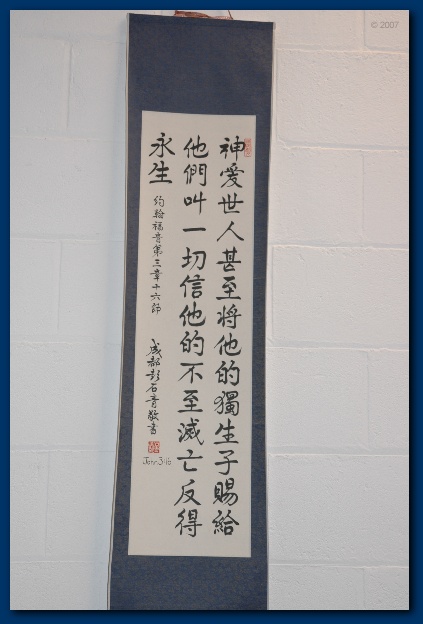 神愛世人甚至將他的獨生子賜給
他們叫一切信他的不至滅亡反得
永生
約翰福音第三章十六節
成都彭石青敬書
John 3:16
© 2007